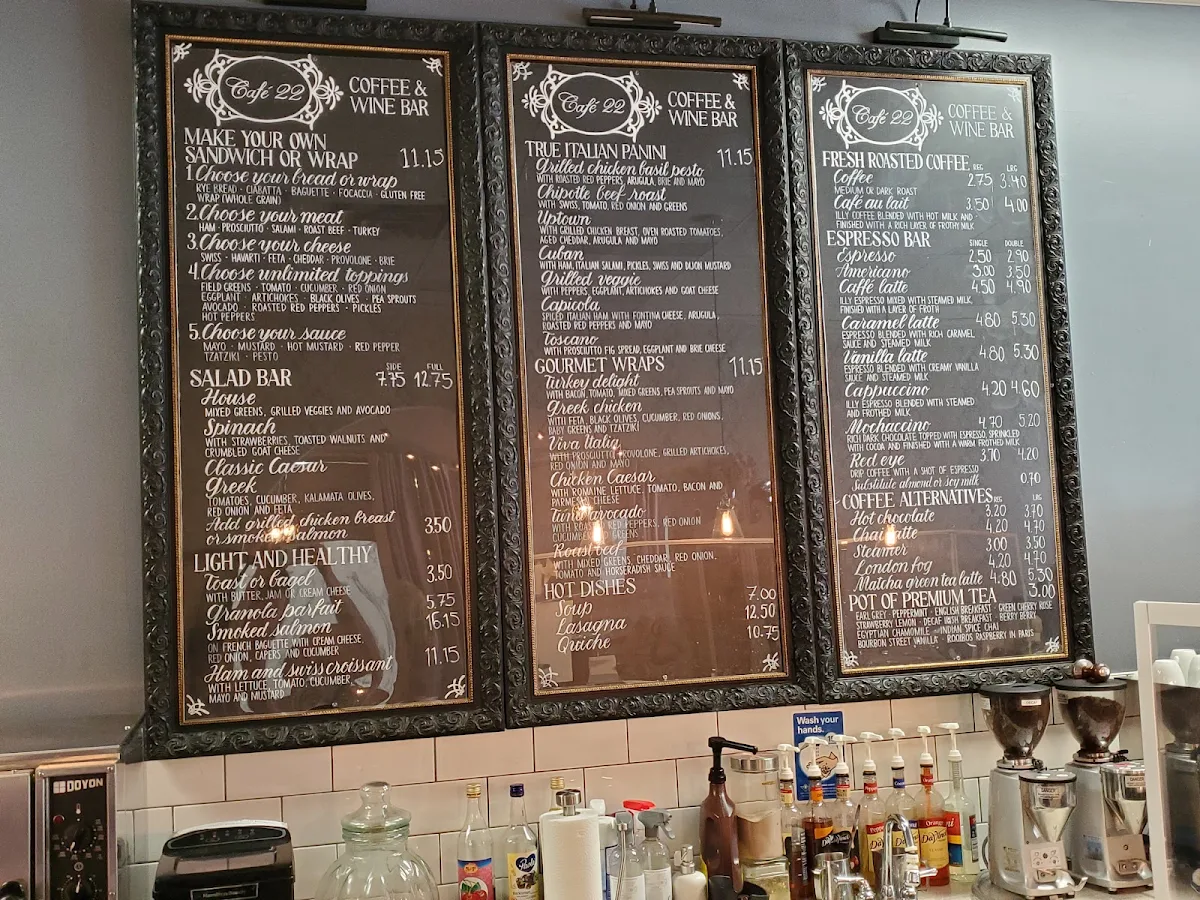 Café 22
COFFEE &
WINE BAR
MAKE YOUR OWN
SANDWICH OR WRAP 11.15
1. Choose your bread or wrap
RYE BREAD · CIABATTA · BAGUETTE · FOCACCIA · GLUTEN FREE
WRAP (WHOLE GRAIN)
2. Choose your meat
HAM · PROSCIUTTO · SALAMI · ROAST BEEF · TURKEY
3. Choose your cheese
SWISS · HAVARTI · FETA · CHEDDAR · PROVOLONE · BRIE
4. Choose unlimited toppings
FIELD GREENS · TOMATO · CUCUMBER · RED ONION
EGGPLANT · ARTICHOKES · BLACK OLIVES · PEA SPROUTS
AVOCADO · ROASTED RED PEPPERS · PICKLES
HOT PEPPERS
5. Choose your sauce
MAYO · MUSTARD · HOT MUSTARD · RED PEPPER
TZATZIKI · PESTO
SALAD BAR SIDE 7.75 FULL 12.75
House
MIXED GREENS, GRILLED VEGGIES AND AVOCADO
Spinach
WITH STRAWBERRIES, TOASTED WALNUTS AND
CRUMBLED GOAT CHEESE
Classic Caesar
Greek
TOMATOES, CUCUMBER, KALAMATA OLIVES,
RED ONION AND FETA
Add grilled chicken breast
or smoked salmon 3.50
LIGHT AND HEALTHY
Toast or bagel 3.50
WITH BUTTER, JAM OR CREAM CHEESE
Granola parfait 5.75
Smoked salmon 16.15
ON FRENCH BAGUETTE WITH CREAM CHEESE,
RED ONION, CAPERS AND CUCUMBER
Ham and swiss croissant 11.15
WITH LETTUCE, TOMATO, CUCUMBER,
MAYO AND MUSTARD
Café 22
COFFEE &
WINE BAR
TRUE ITALIAN PANINI 11.15
Grilled chicken basil pesto
WITH ROASTED RED PEPPERS, ARUGULA, BRIE AND MAYO
Chipotle beef roast
WITH SWISS, TOMATO, RED ONION AND GREENS
Uptown
WITH GRILLED CHICKEN BREAST, OVEN ROASTED TOMATOES,
AGED CHEDDAR, ARUGULA AND MAYO
Cuban
WITH HAM, ITALIAN SALAMI, PICKLES, SWISS AND DIJON MUSTARD
Grilled veggie
WITH PEPPERS, EGGPLANT, ARTICHOKES AND GOAT CHEESE
Capicola
SPICED ITALIAN HAM WITH FONTINA CHEESE, ARUGULA,
ROASTED RED PEPPERS AND MAYO
Toscano
WITH PROSCIUTTO FIG SPREAD, EGGPLANT AND BRIE CHEESE
GOURMET WRAPS 11.15
Turkey delight
WITH BACON, TOMATO, MIXED GREENS, PEA SPROUTS AND MAYO
Greek chicken
WITH FETA, BLACK OLIVES, CUCUMBER, RED ONIONS,
BABY GREENS AND TZATZIKI
Viva Italia
WITH PROSCIUTTO, PROVOLONE, GRILLED ARTICHOKES,
RED ONION AND MAYO
Chicken Caesar
WITH ROMAINE LETTUCE, TOMATO, BACON AND
PARMESAN CHEESE
Tuna avocado
WITH ROASTED RED PEPPERS, RED ONION
CUCUMBER GREENS
Roast beef
WITH MIXED GREENS, CHEDDAR, RED ONION,
TOMATO AND HORSERADISH SAUCE
HOT DISHES
Soup 7.00
Lasagna 12.50
Quiche 10.75
Café 22
COFFEE &
WINE BAR
FRESH ROASTED COFFEE REG LRG
Coffee 2.75 3.40
MEDIUM OR DARK ROAST
Café au lait 3.50 4.00
ILLY COFFEE BLENDED WITH HOT MILK AND
FINISHED WITH A RICH LAYER OF FROTHY MILK
ESPRESSO BAR SINGLE DOUBLE
Espresso 2.50 2.90
Americano 3.00 3.50
Caffè latte 4.50 4.90
ILLY ESPRESSO MIXED WITH STEAMED MILK,
FINISHED WITH A LAYER OF FROTH
Caramel latte 4.80 5.30
ESPRESSO BLENDED WITH RICH CARAMEL
SAUCE AND STEAMED MILK
Vanilla latte 4.80 5.30
ESPRESSO BLENDED WITH CREAMY VANILLA
SAUCE AND STEAMED MILK
Cappuccino 4.20 4.60
ILLY ESPRESSO BLENDED WITH STEAMED
AND FROTHED MILK
Mochaccino 4.70 5.20
RICH DARK CHOCOLATE TOPPED WITH ESPRESSO, SPRINKLED
WITH COCOA AND FINISHED WITH A WARM FROTHED MILK
Red eye 3.70 4.20
DRIP COFFEE WITH A SHOT OF ESPRESSO
Substitute almond or soy milk 0.70
COFFEE ALTERNATIVES REG LRG
Hot chocolate 3.20 3.70
Chai latte 4.20 4.70
Steamer 3.00 3.50
London fog 4.20 4.70
Matcha green tea latte 4.80 5.30
POT OF PREMIUM TEA 3.00
EARL GREY · PEPPERMINT · ENGLISH BREAKFAST · GREEN CHERRY ROSE
STRAWBERRY LEMON · DECAF IRISH BREAKFAST · BERRY BERRY
EGYPTIAN CHAMOMILE · INDIAN SPICE CHAI
BOURBON STREET VANILLA · ROOIBOS RASPBERRY IN PARIS
Wash your
hands.
DOYON